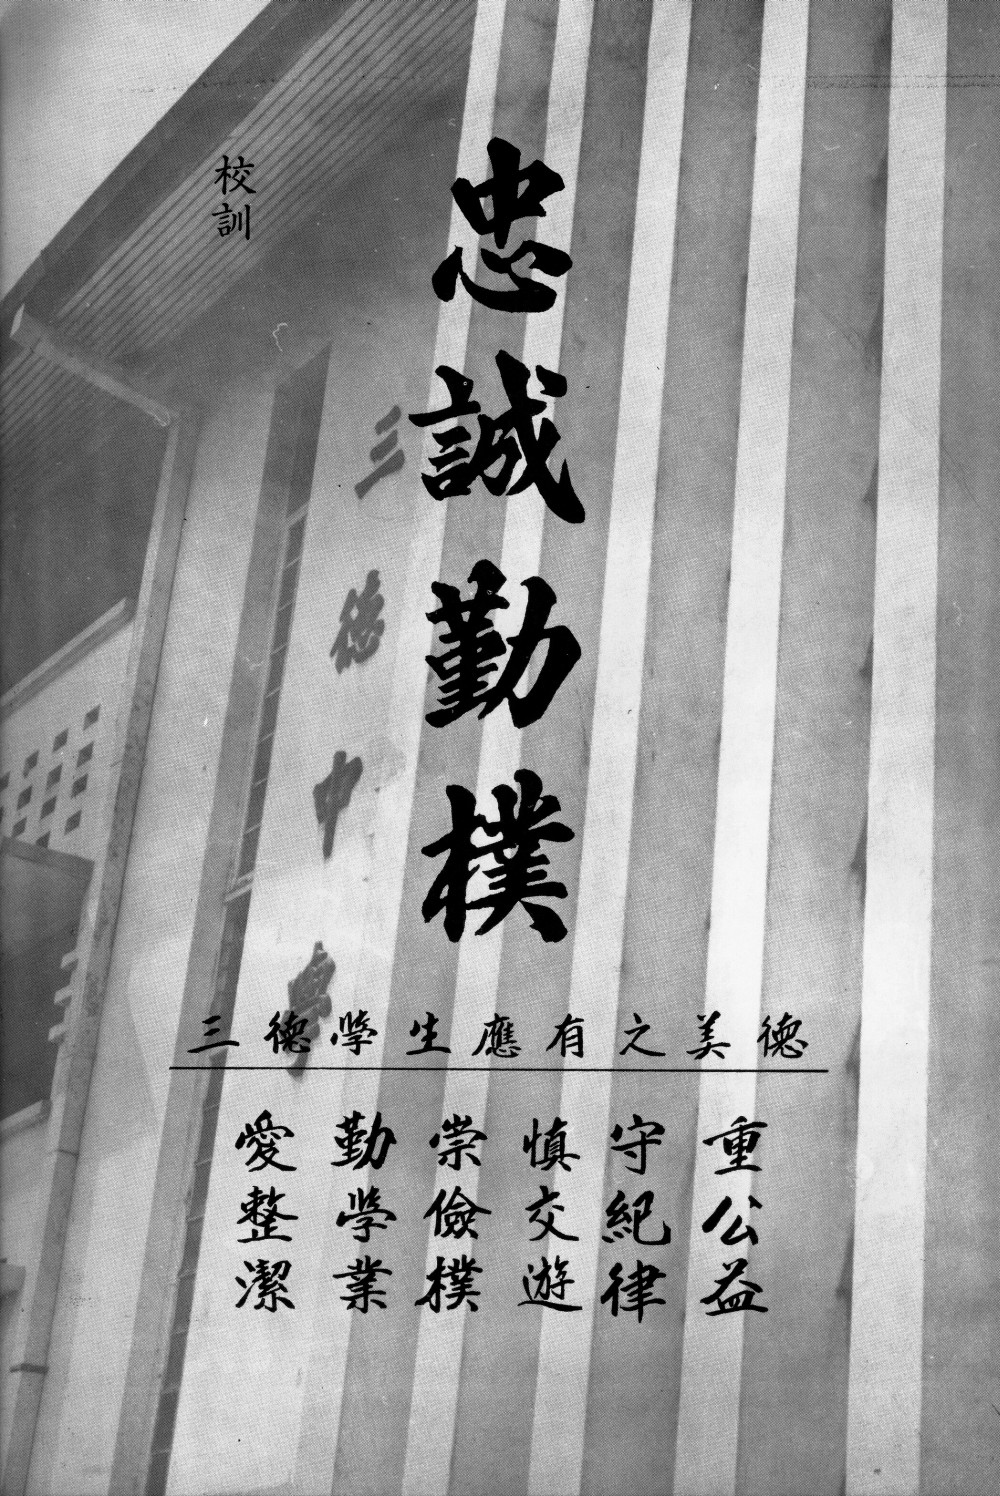 校訓
忠誠勤樸
三德中學
三德學生應有之美德
愛整潔
勤學業
崇儉樸
慎交遊
守紀律
重公益